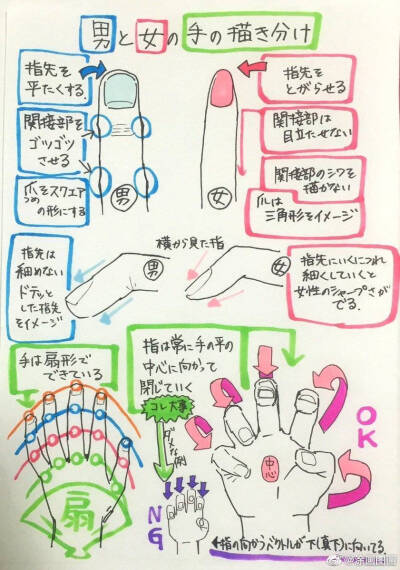 男と女の手の描き分け
指先を
平たくする。
関接部を
ゴツゴツ
させる
爪をスクエア
つめ
の形にする
男
指先を
とがらせる
関接部は
目立たせない
関接部のシワを
描かない
爪は
三角形をイメージ
女
横から見た指
指先は
細めない
ドテッと
した指先
をイメージ
男
女
指先にいくにつれ
細くしていくと
女性のシャープさが
でる。
手は扇形で
できている
扇
指は常に手の平の
中心に向かって
閉じていく
コレ大事
ダメな例
NG
中心
OK
指の向かうベクトルが下(真下)に向いてる。